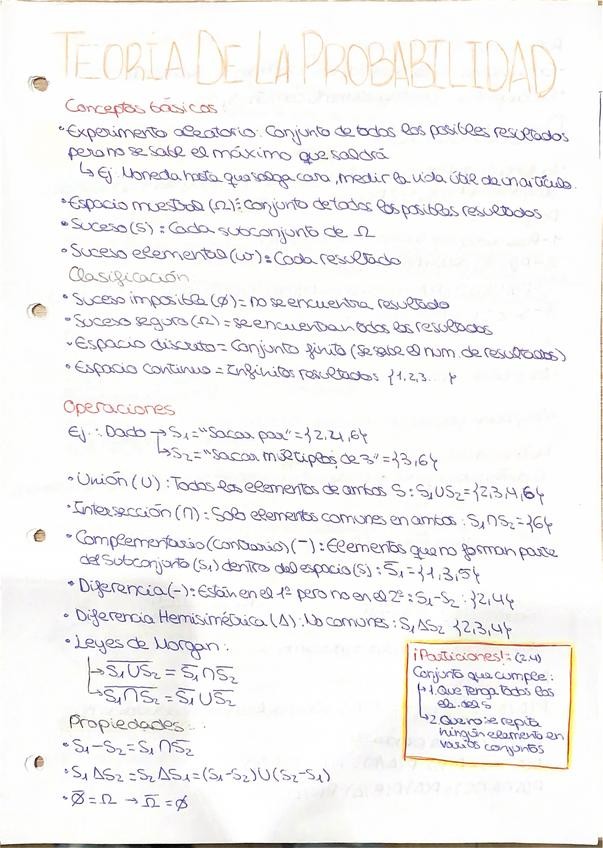 TEORÍA DE LA PROBABILIDAD
Conceptos básicos:
• Experimento aleatorio: Conjunto de todos los posibles resultados
pero no se sabe el máximo que saldrá
↳ Ej: Moneda hasta que salga cara, medir la vida útil de un artículo.
• Espacio muestral (Ω): Conjunto de todos los posibles resultados
• Suceso (S): Cada subconjunto de Ω
• Suceso elemental (ω): Cada resultado
Clasificación
• Suceso imposible (Ø) = no se encuentra resultado
• Suceso seguro (Ω) = se encuentran todos los resultados
• Espacio discreto = Conjunto finito (se sabe el num. de resultados)
• Espacio continuo = Infinitos resultados {1,2,3... }
Operaciones
Ej.: Dado → S₁ = "Sacar par" = {2,4,6}
↳ S₂ = "Sacar múltiplos de 3" = {3,6}
• Unión (U): Todos los elementos de ambos S: S₁∪S₂ = {2,3,4,6}
• Intersección (∩): Solo elementos comunes en ambos: S₁∩S₂ = {6}
• Complementario (contrario) (¯): Elementos que no forman parte
del subconjunto (S₁) dentro del espacio (S): S̅₁ = {1,3,5}
• Diferencia (-): Están en el 1º pero no en el 2º: S₁-S₂: {2,4}
• Diferencia Hemisimétrica (Δ): No comunes: S₁ΔS₂ {2,3,4}
• Leyes de Morgan:
↳ \overline{S₁∪S₂} = S̅₁∩S̅₂
↳ \overline{S₁∩S₂} = S̅₁∪S̅₂
Propiedades:
• S₁-S₂ = S₁∩S̅₂
• S₁ΔS₂ = S₂ΔS₁ = (S₁-S₂)∪(S₂-S₁)
• Ø̅ = Ω → Ω̅ = Ø
¡Particiones!: (2,4)
Conjunto que cumple:
→ 1. Que tenga todos los
el. del S
→ 2. Que no se repita
ningún elemento en
varios conjuntos